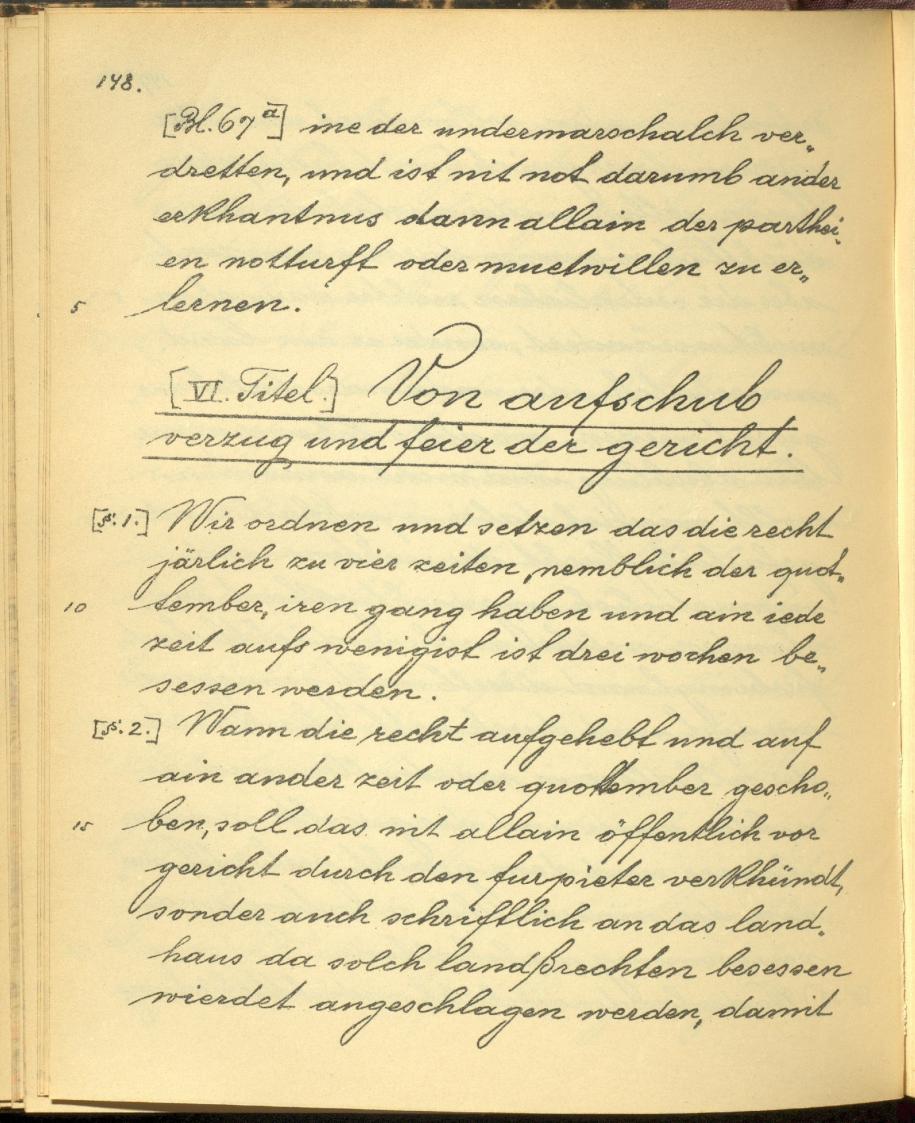 148.
[Bl. 67 a] ine der undermarschalch ver„
dretten, und ist nit not darumb ander
erkhantnus dann allain der parthei„
en notturft oder muetwillen zu er„
5 lernen.
[VI. Titel.] Von aufschub
verzug und feier der gericht.
[§. 1.] Wir ordnen und setzen das die recht
järlich zu vier zeiten, nemblich der quot„
10 tember, iren gang haben und ain iede
zeit aufs wenigist ist drei wochen be„
sessen werden.
[§. 2.] Wann die recht aufgehebt und auf
ain ander zeit oder quottember gescho„
15 ben, soll das nit allain öffentlich vor
gericht durch den furpieter verkhündt,
sonder auch schriftlich an das land„
haus da solch landßrechten besessen
wierdet angeschlagen werden, damit